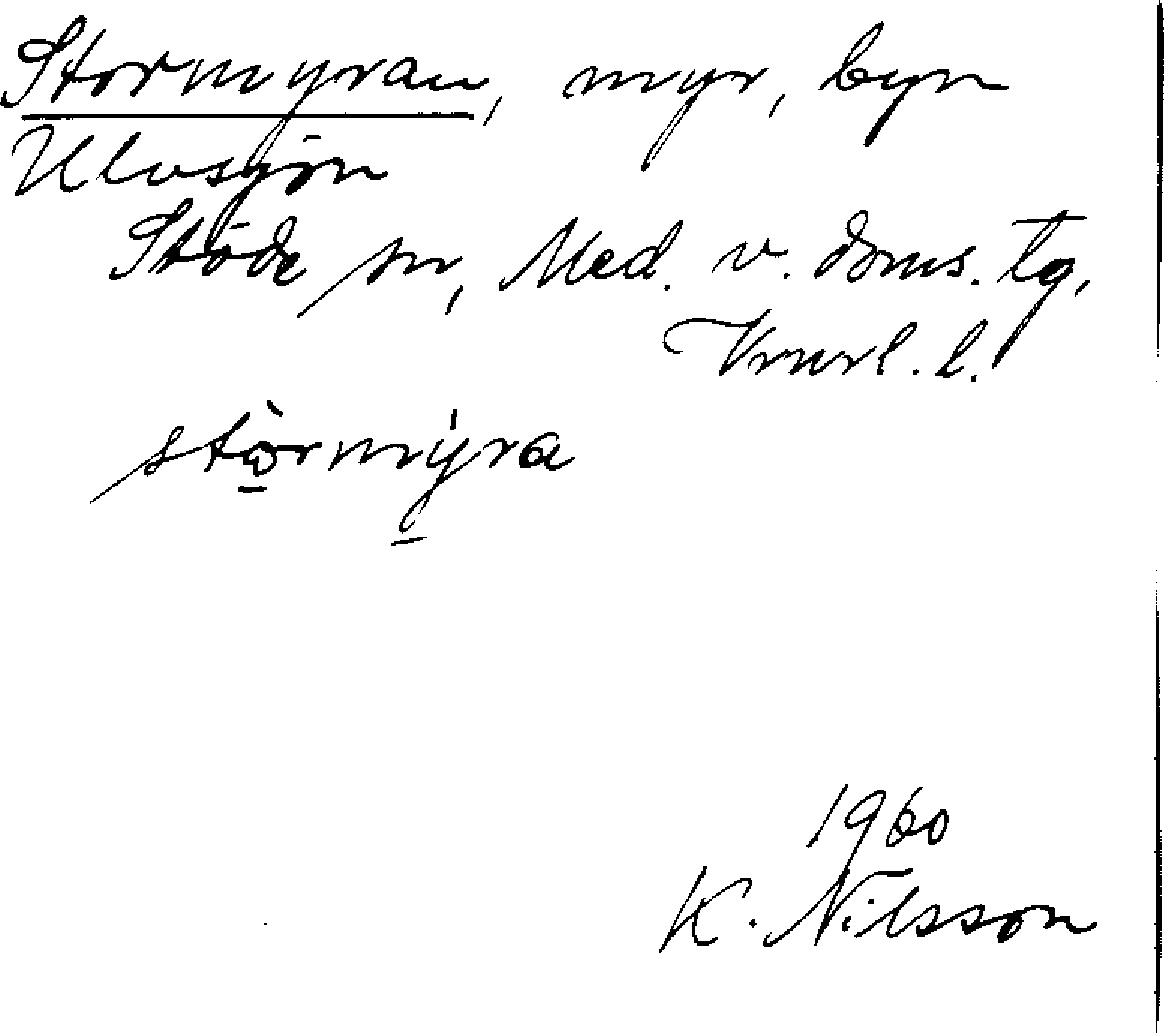 Stormyran, myr, byn
Ulvsjön
Stöde sn, Med. v. doms. tg,
Vrnrl. l.
stòrmýra
1960
K. Nilsson